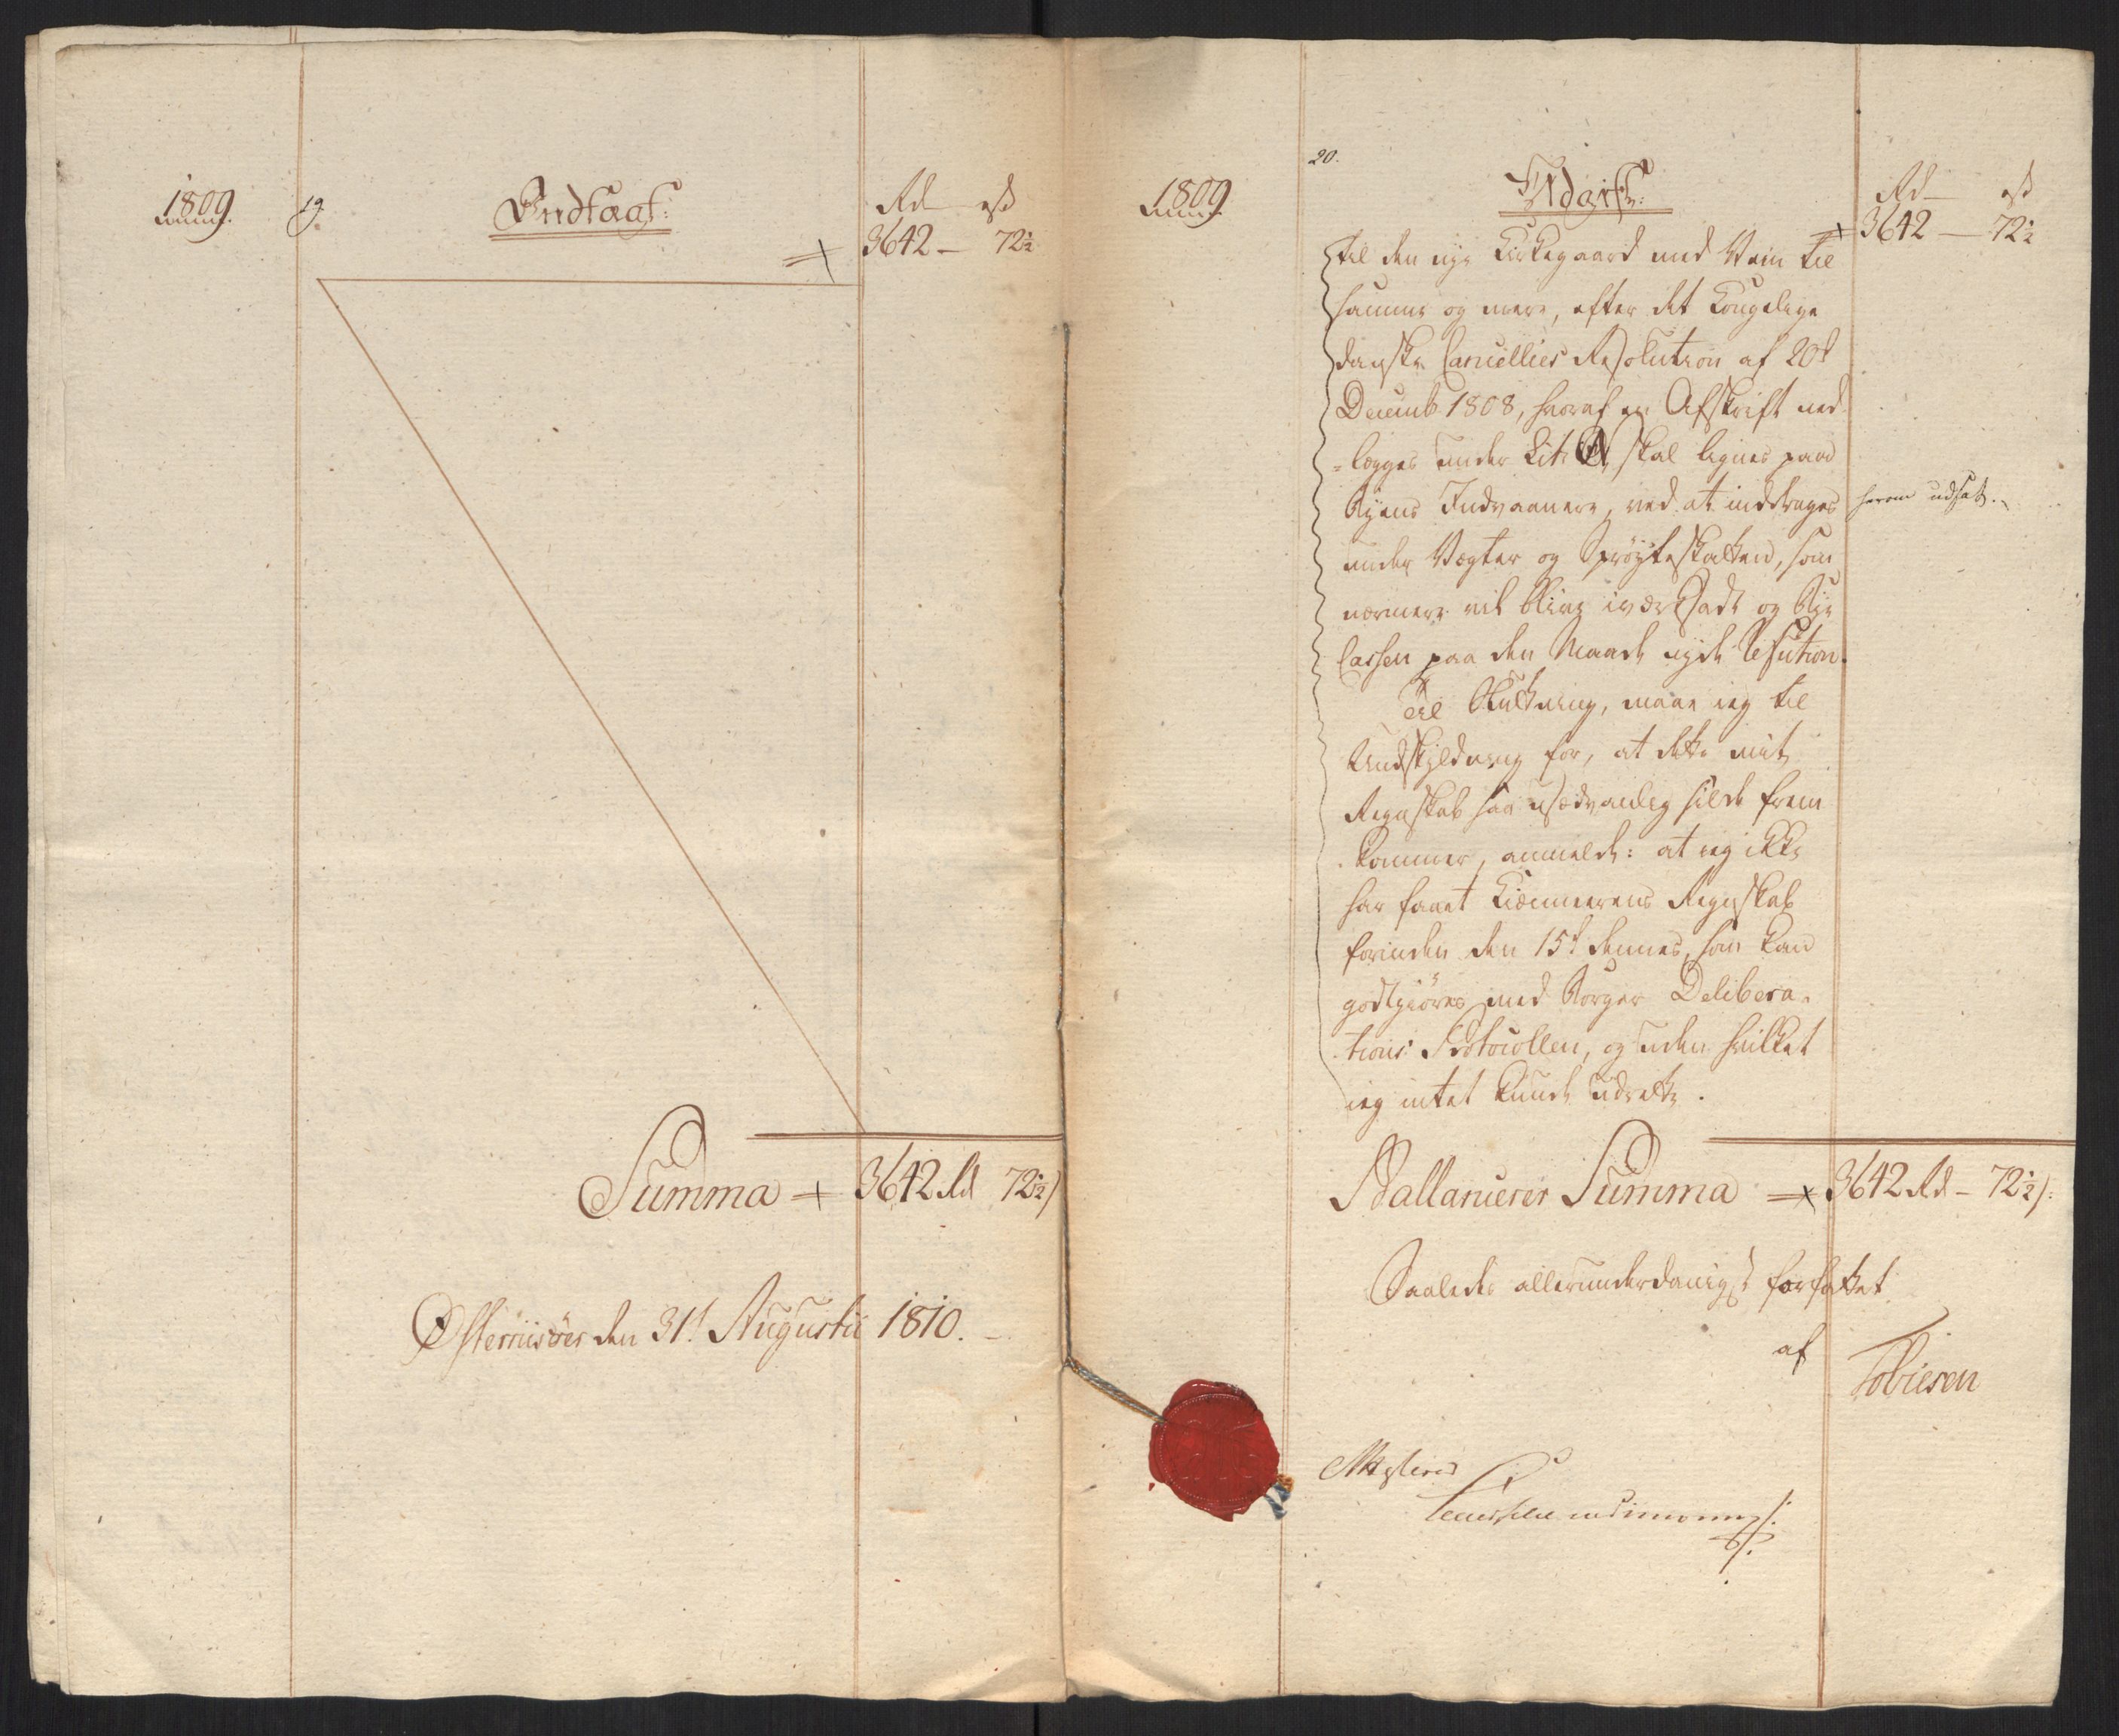 1809.
19.
Indtægt:
Rd ß
3642 — 72½
Summa 3642 Rd 72½ ß
Østerriisöer den 31t Augustii 1810.
1809
20.
Udgift:
Rd ß
3642 — 72½
til den nye Kirkegaard med Vein til
samme og mere, efter det Kongelige
danske Cancellies Resolution af 20d
Decemb 1808, hvoraf en Afskrift ned-
=lægges under Lit: skal lignes paa
Byens Indvaanere, ved at inddrages
herom udsat.
under Vægter og Sprøyteskatten, som
nærmere vil blive iværksadt og Bye
Cassen paa den Maade nyde Refution.
Til Slutning, maae ieg til
Undskyldning for, at dette mit
Regnskab saa usædvanlig silde frem
kommer, anmelde: at ieg ikke
har faaet Kiæmnerens Regnskab
forinden den 15d dennes, som kan
godtgiøres med Borger Delibera-
tions Protocollen, og uden hvilket
ieg intet kunde udrette.
Ballancerer Summa 3642 Rd — 72½ ß:
Saaledes allerunderdanigst forfattet
af
Tobiesen